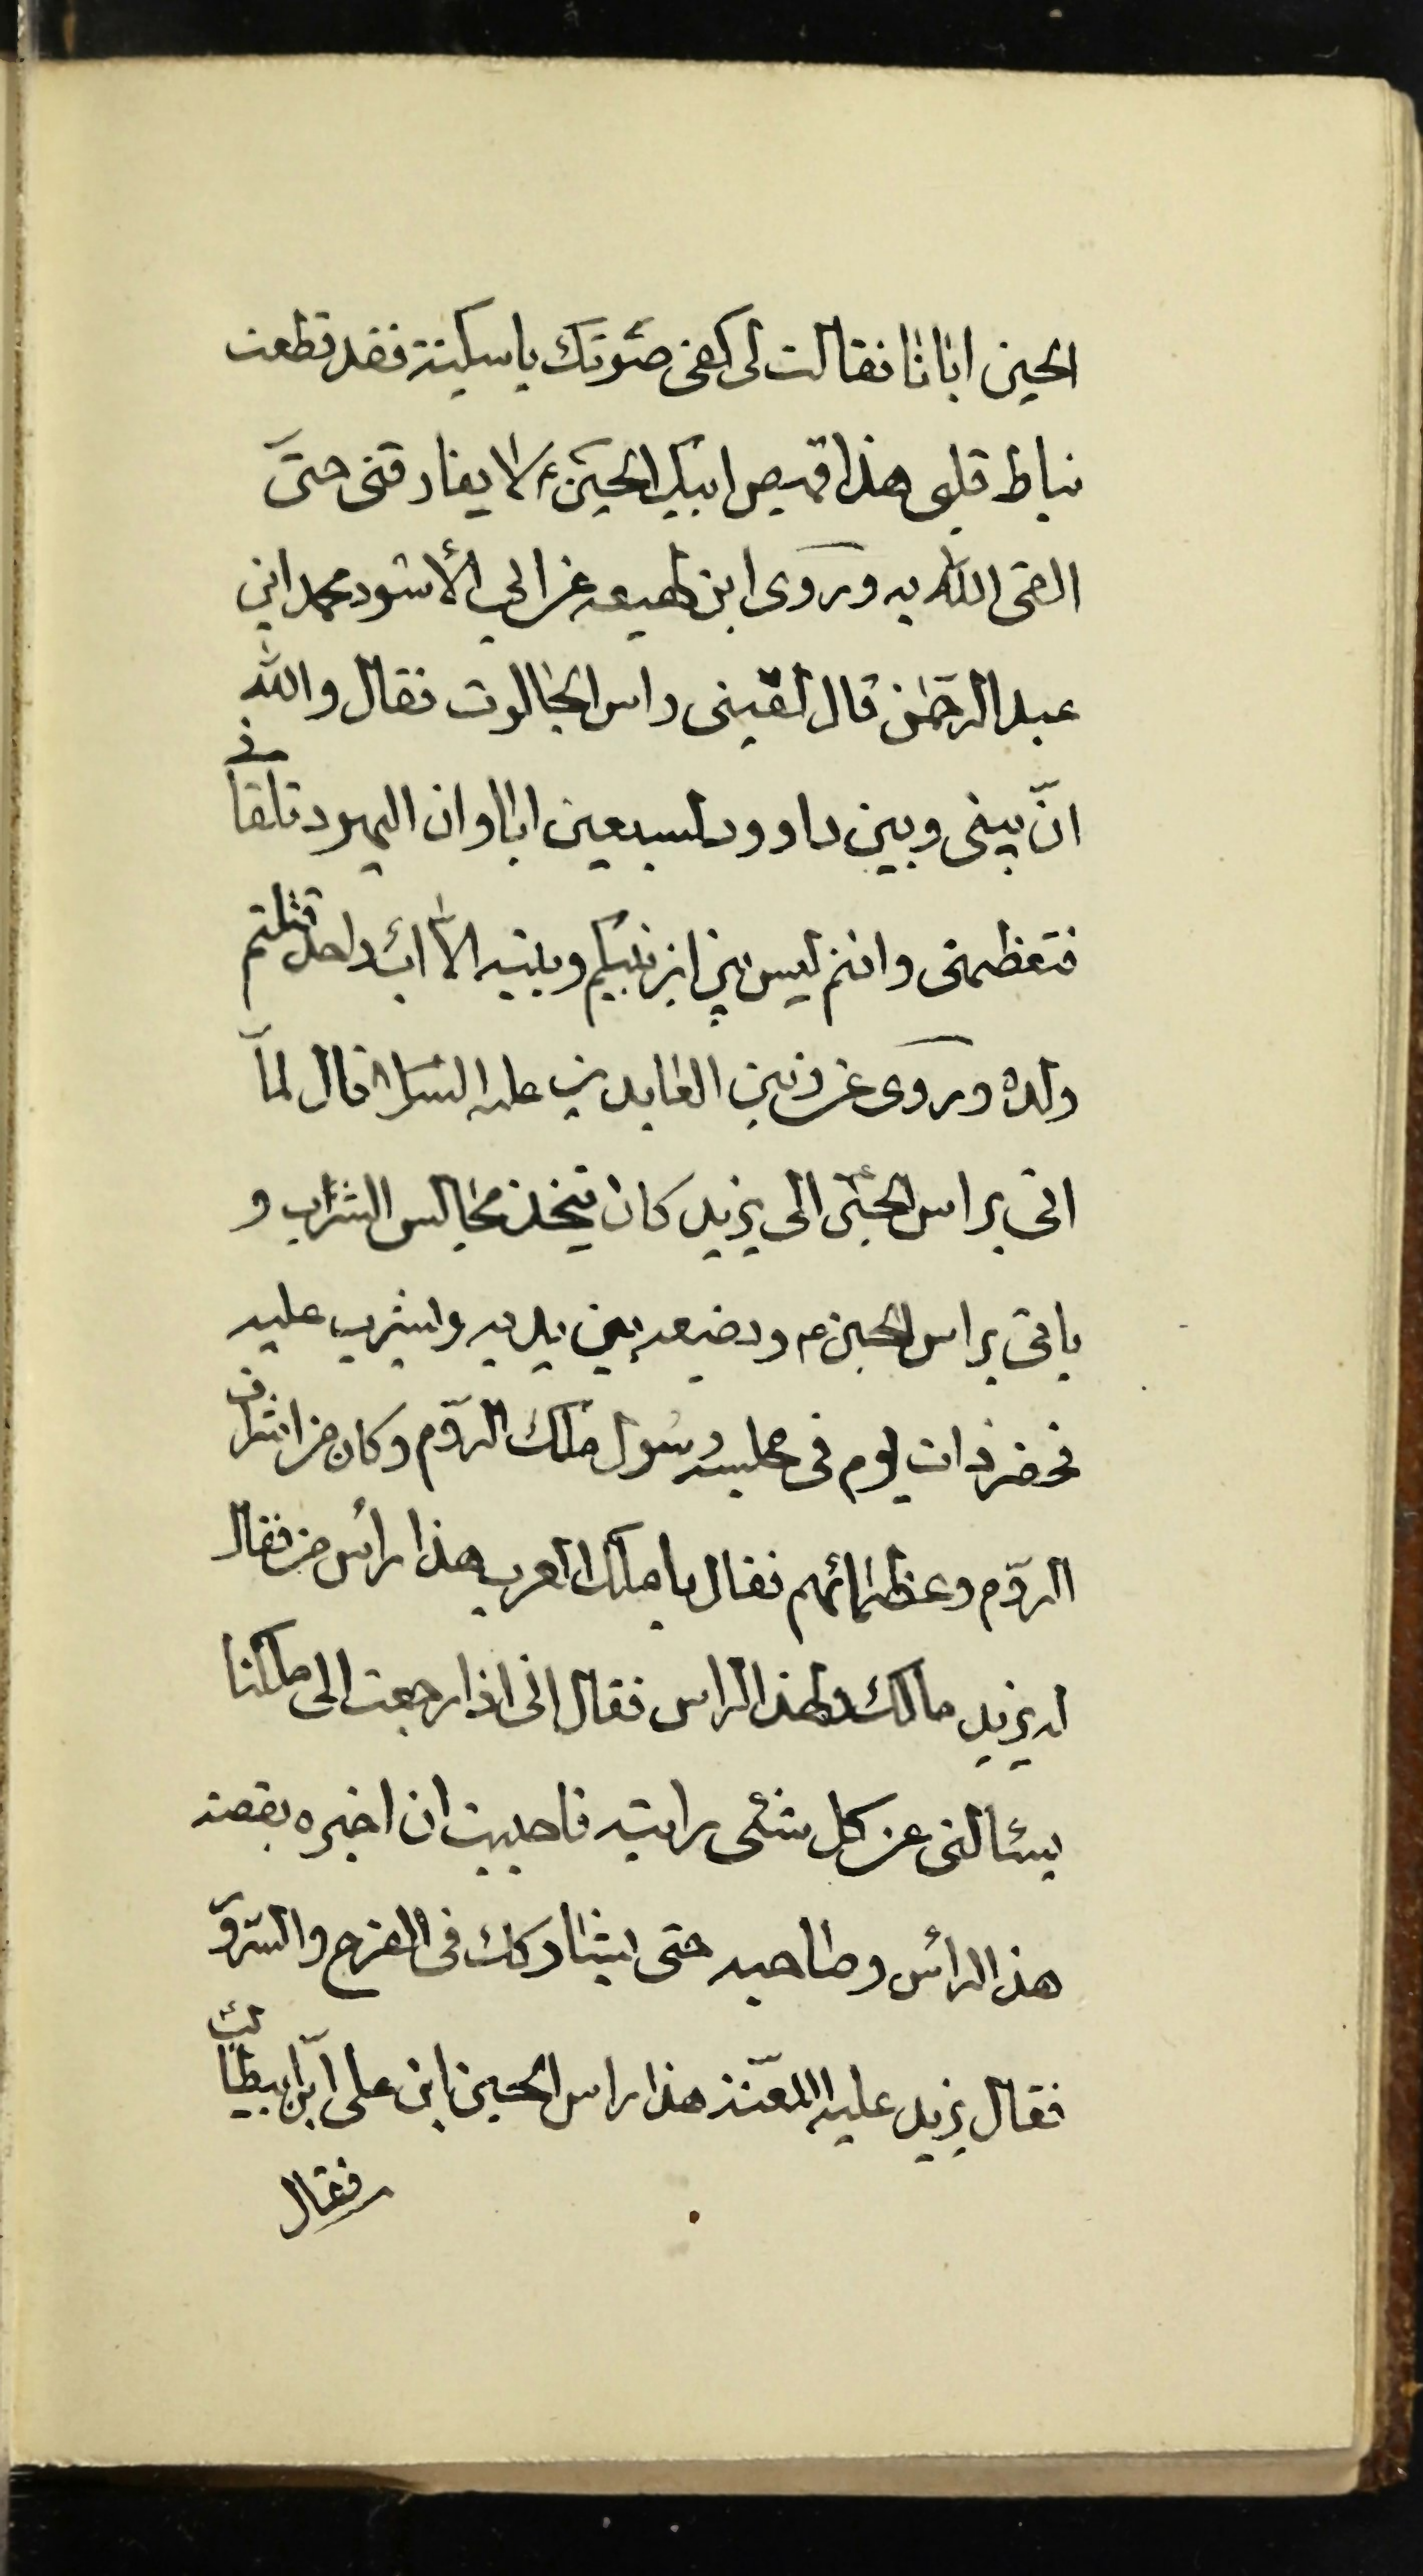 الحسین ابانا فقالت لی کفی صوتک یا سکینة فقد قطعت
نیاط قلبی هذا قمیص ابیک الحسین ع لا یفارقنی حتّی
القی اللّه به و روی ابن لهیعه عن ابی الأسود محمد ابن
عبد الرحمن قال لقینی راس الجالوت فقال واللّه
انّ بینی و بین داوود لسبعین ابا و ان الیهود تلقانی
فتعظمنی و انتم لیس بین ابن نبیکم و بینه الا اب واحد قتلتم
ولده و روی عن زین العابدین علیه السلام قال لمّا
اتی براس الحسین ع الی یزید کان یتخذ مجالس الشراب و
یاتی براس الحسین ع و یضیعه بین یدیه و یشرب علیه
فحضر ذات یوم فی مجلسه رسول ملک الروم و کان من اشراف
الروم و عظمائهم فقال یا ملک العرب هذا رأس من فقال
له یزید مالک و لهذا الراس فقال انی اذا رجعت الی ملکنا
یسئالنی عن کل شئی رایته فاحببت ان اخبره بقصه
هذا الرأس و صاحبه حتی یشارکک فی الفرح و السّرو
فقال یزید علیه اللعنة هذا راس الحسین ابن علی ابن ابیطالب
فقال